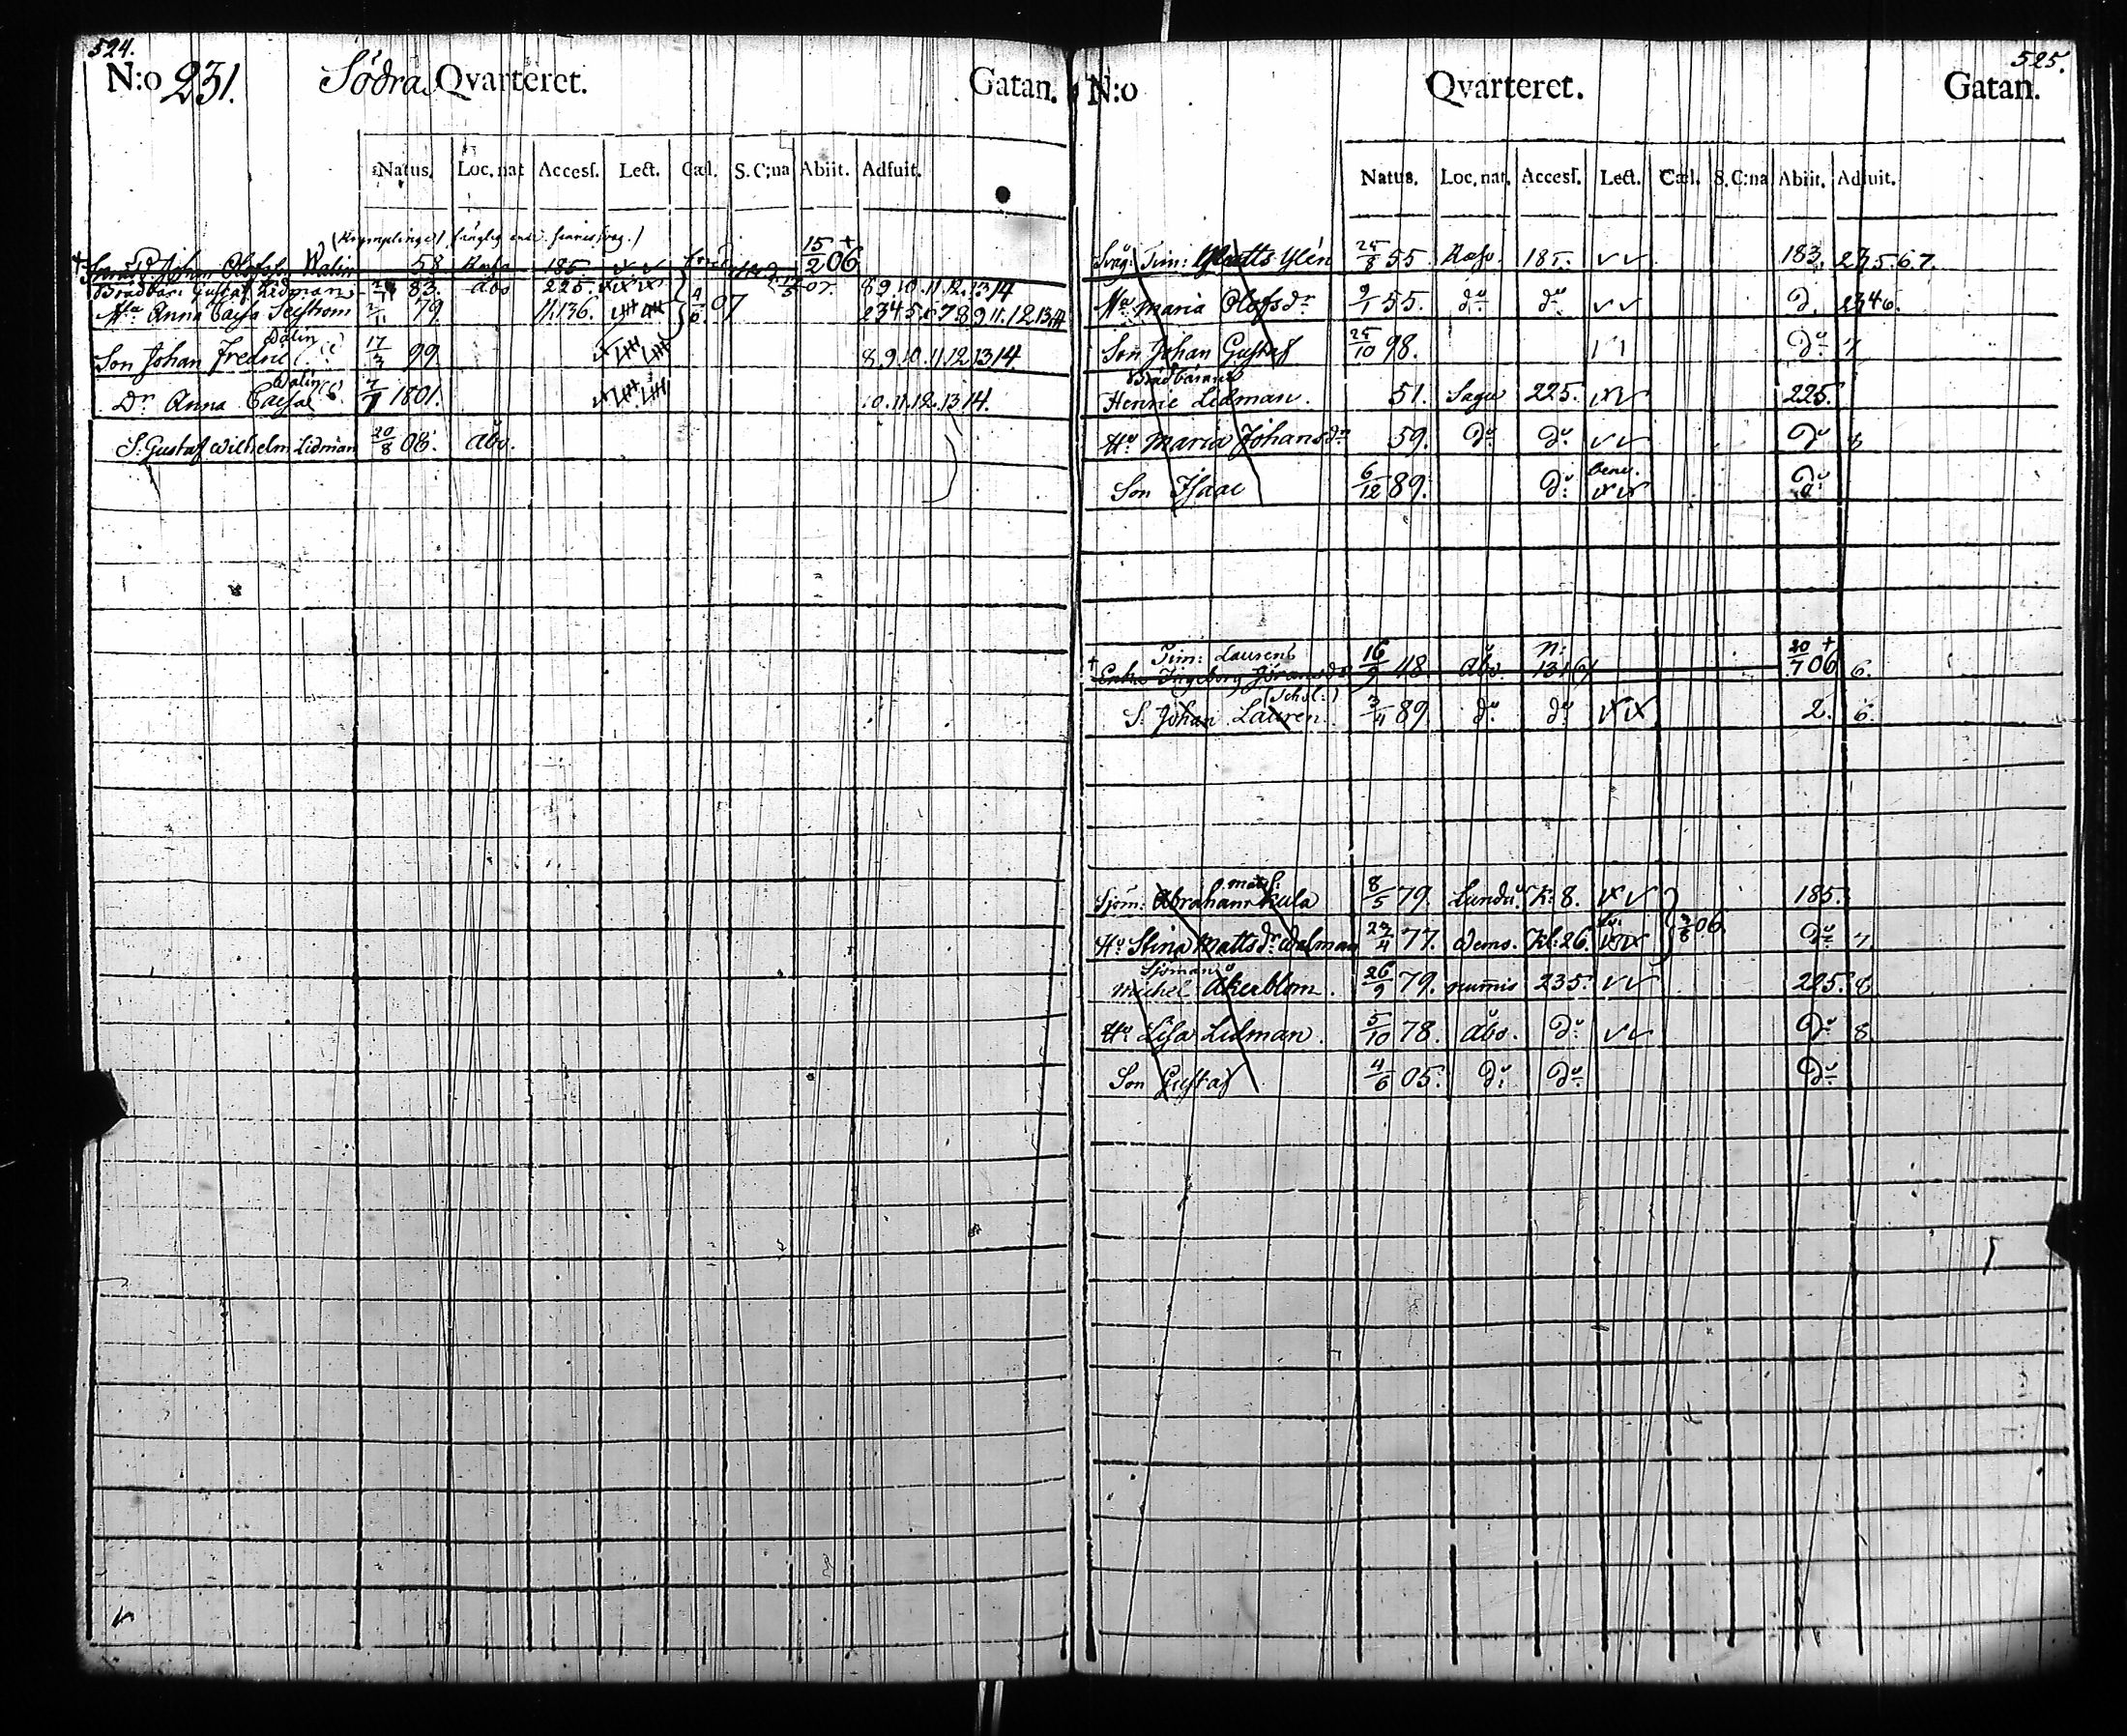 524.
N:o 231. Södra Qvarteret. Gatan.
Natus. Loc. nat Accesf. Lect. Cæl. S. C:na Abiit. Adfuit.
Johan Olofsson Walin 58 185. 15/2 06 +
Gustaf Lidman 83. Åbo 225. 8 9. 10. 11. 12. 13 14
Hu Anna Caisa 79. 11.136. 07 2 3 4 5 6 7 8 9 11. 12. 13 14
Walin
Son Johan Fredric 17/3 99. 8. 9. 10. 11. 12. 13 14.
Walin
Dr Anna Caisa 7/7 1801. 10. 11. 12. 13 14.
S. Gustaf Wilhelm Lidman 20/8 08. Åbo.
525.
N:o Qvarteret. Gatan.
Natus. Loc. nat. Accesf. Lect. Cæl. S. C:na Abiit. Adfuit.
Tim: Matts Ylén 25/8 55. 185. 183. 2 3. 5. 6. 7.
Hu Maria Olofsdr 9/1 55. do do D. 2 3 4 6.
Son Johan Gustaf 25/10 98. Do 7
Brädbärare
Henric Lidman. 51. Sagu 225. 225.
Hu Maria Johansdr 59. Do Do Do 8
Son Isaac 6/12 89. Do Do
Tim: Laurens
+ Enka Ingeborg Göransdr 16/9 48 Åbo. 20/7 06 + 6.
(Schol:)
S. Johan Lauren. 3/4 89 do do 2. 6.
Sjöm: Abraham Kula 8/5 79. Lundu K: 8. 185.
Hu Stina Mattsdr Walman 27/4 77. Wemo. Kl: 26. 06 Do 7
Sjöman
Michel Åkerblom. 26/9 79. numis 235. 225. 8
Hu Lisa Lidman. 5/10 78. Åbo. Do Do 8.
Son Gustaf 4/6 05. Do Do Do